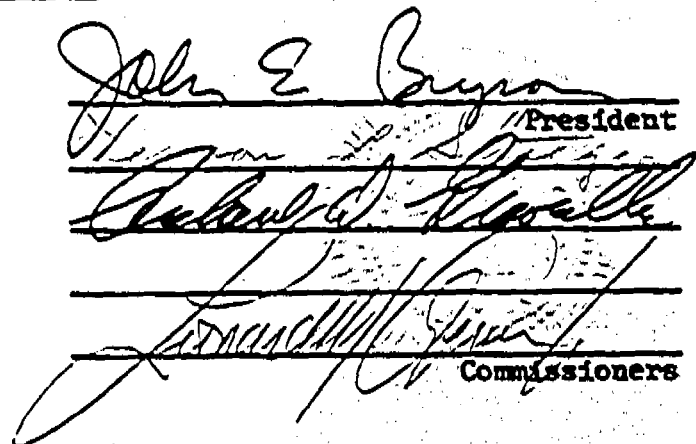 John E. Bryson
President
Richard D. Gravelle
Leonard M. Grimes, Jr.
Commissioners